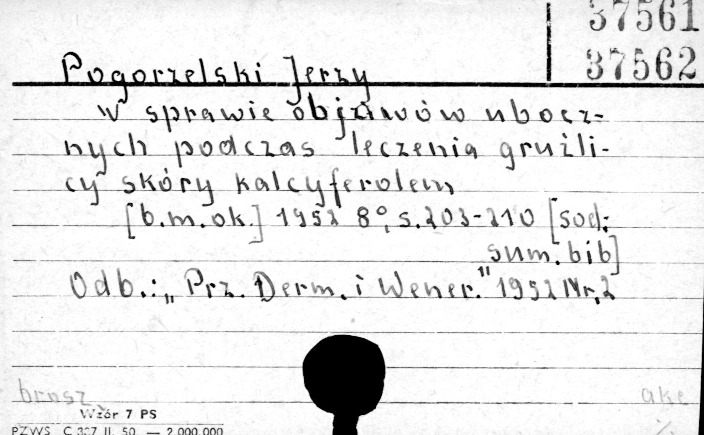 37561
37562
Pogorzelski Jerzy
w sprawie objawów ubocz-
nych podczas leczenia gruźli-
cy skóry kalcyferolem
[b.m.ok.] 1952 8°, s.203-210 [sod:
sum. bib]
Odb.: „Prz. Derm. i Wener." 1952 Nr.2
brosz.
akc
Wzór 7 PS
PZWS C 337 II. 50. — 2.000.000